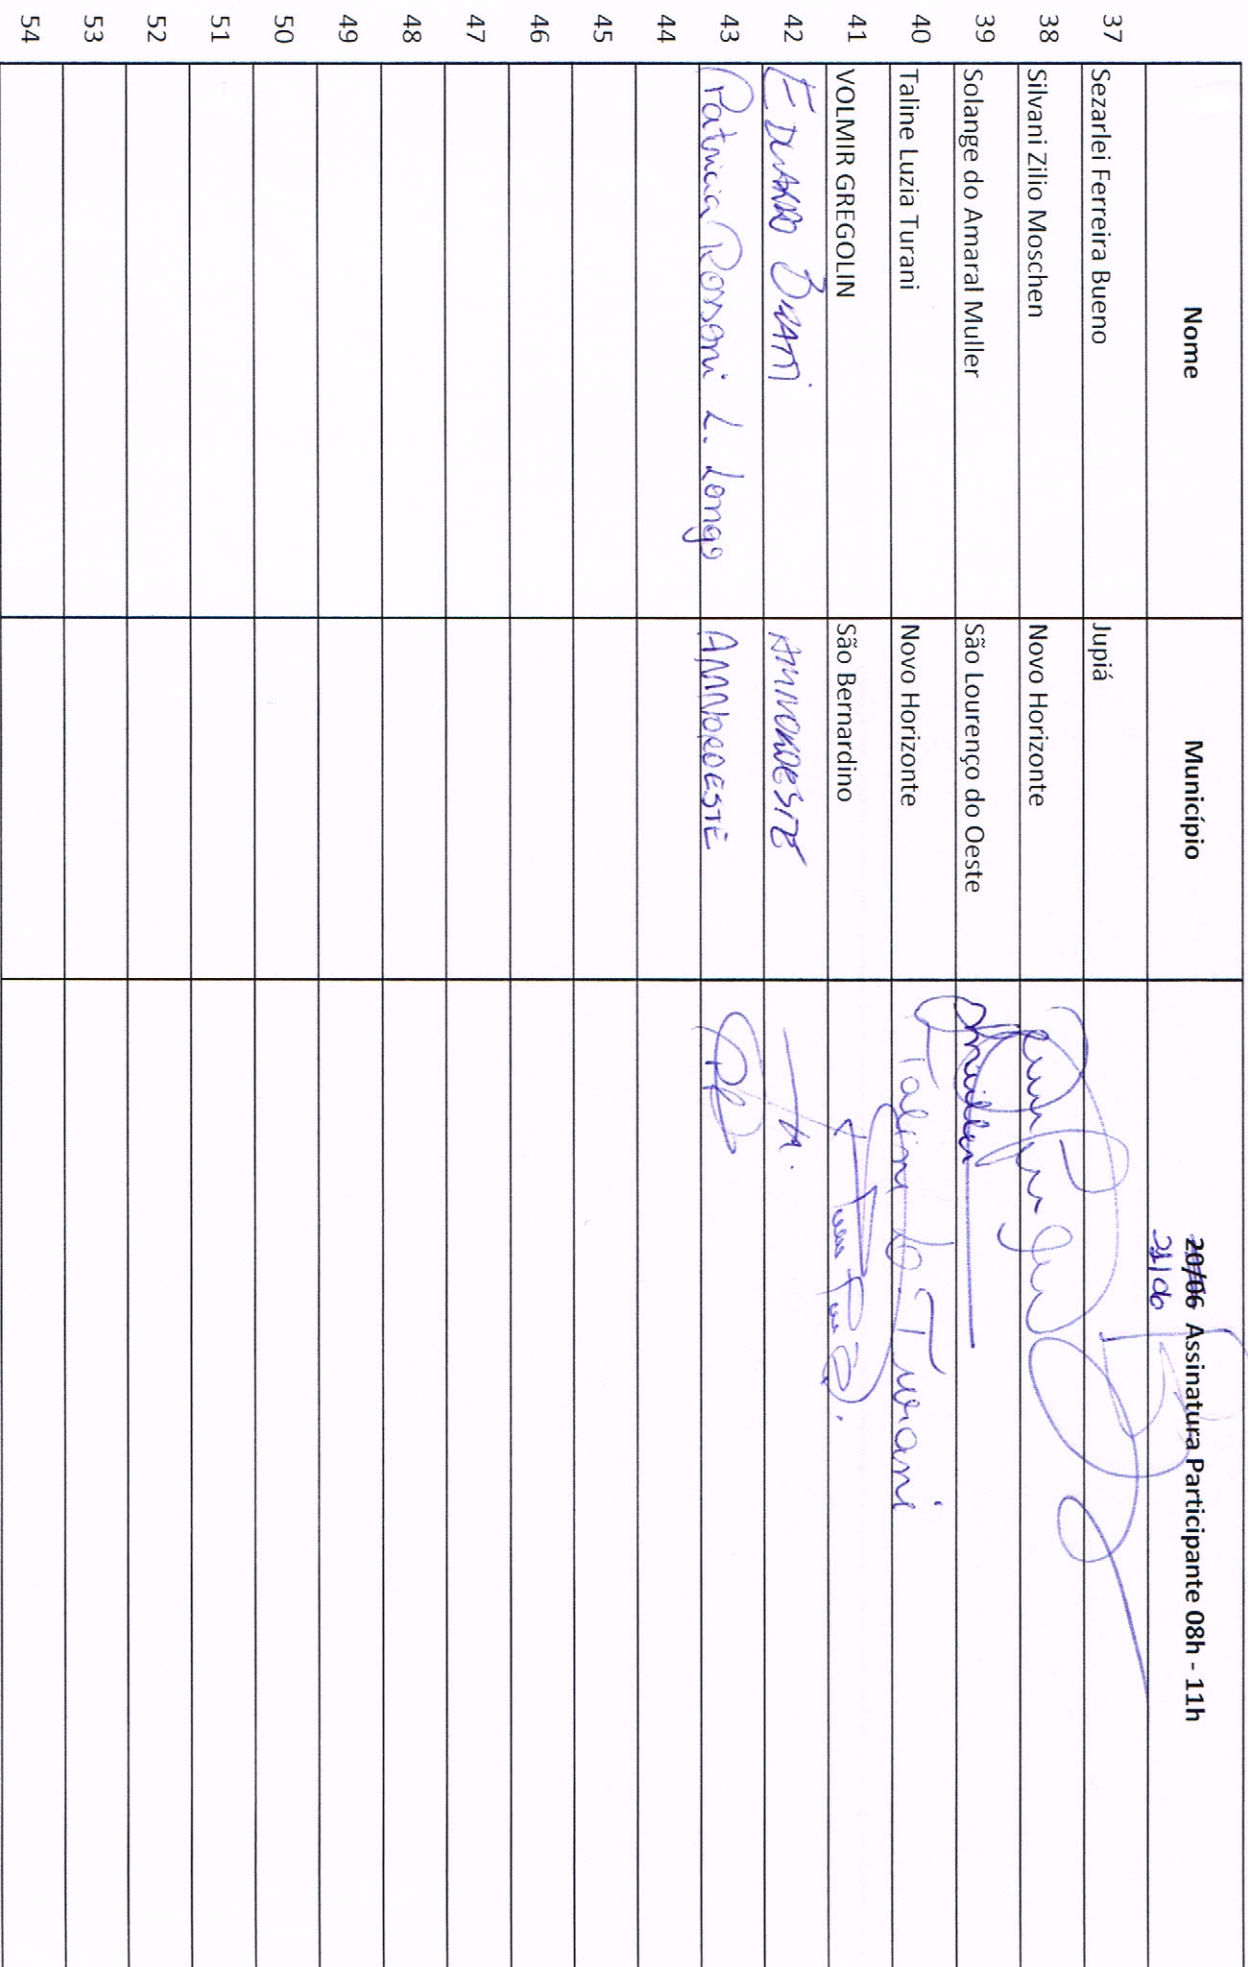 Nome Município 20/06 Assinatura Participante 08h - 11h
21/06
37 Sezarlei Ferreira Bueno Jupiá
38 Silvani Zilio Moschen Novo Horizonte
39 Solange do Amaral Muller São Lourenço do Oeste Smuller
40 Taline Luzia Turani Novo Horizonte Taline L. Turani
41 VOLMIR GREGOLIN São Bernardino
42 EDUARDO AMNOROESTE
43 Patricia Rossoni L. Longo AMNOROESTE
44
45
46
47
48
49
50
51
52
53
54